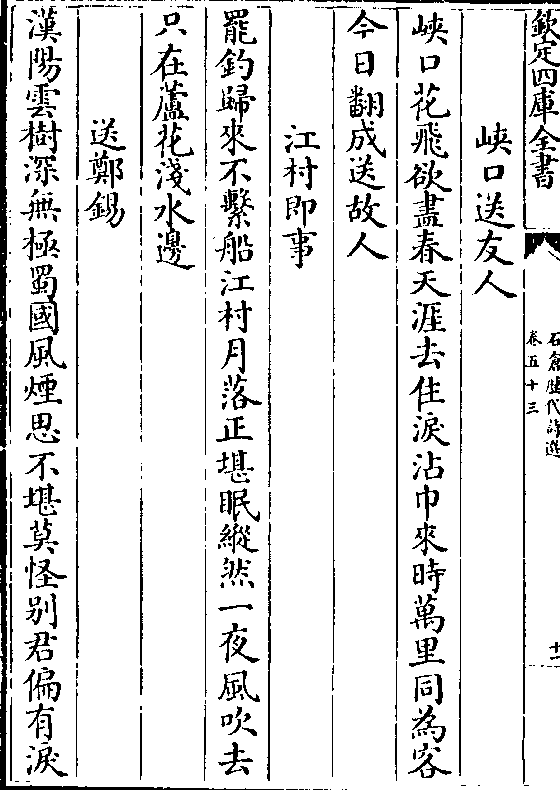 欽定四庫全書
石倉歷代詩選
卷五十三
十一
峽口送友人
峽口花飛欲盡春天涯去住淚沾巾來時萬里同為客
今日翻成送故人
江村即事
罷釣歸來不繫船江村月落正堪眠縱然一夜風吹去
只在蘆花淺水邊
送鄭錫
漢陽雲樹深無極蜀國風煙思不堪莫怪別君偏有淚